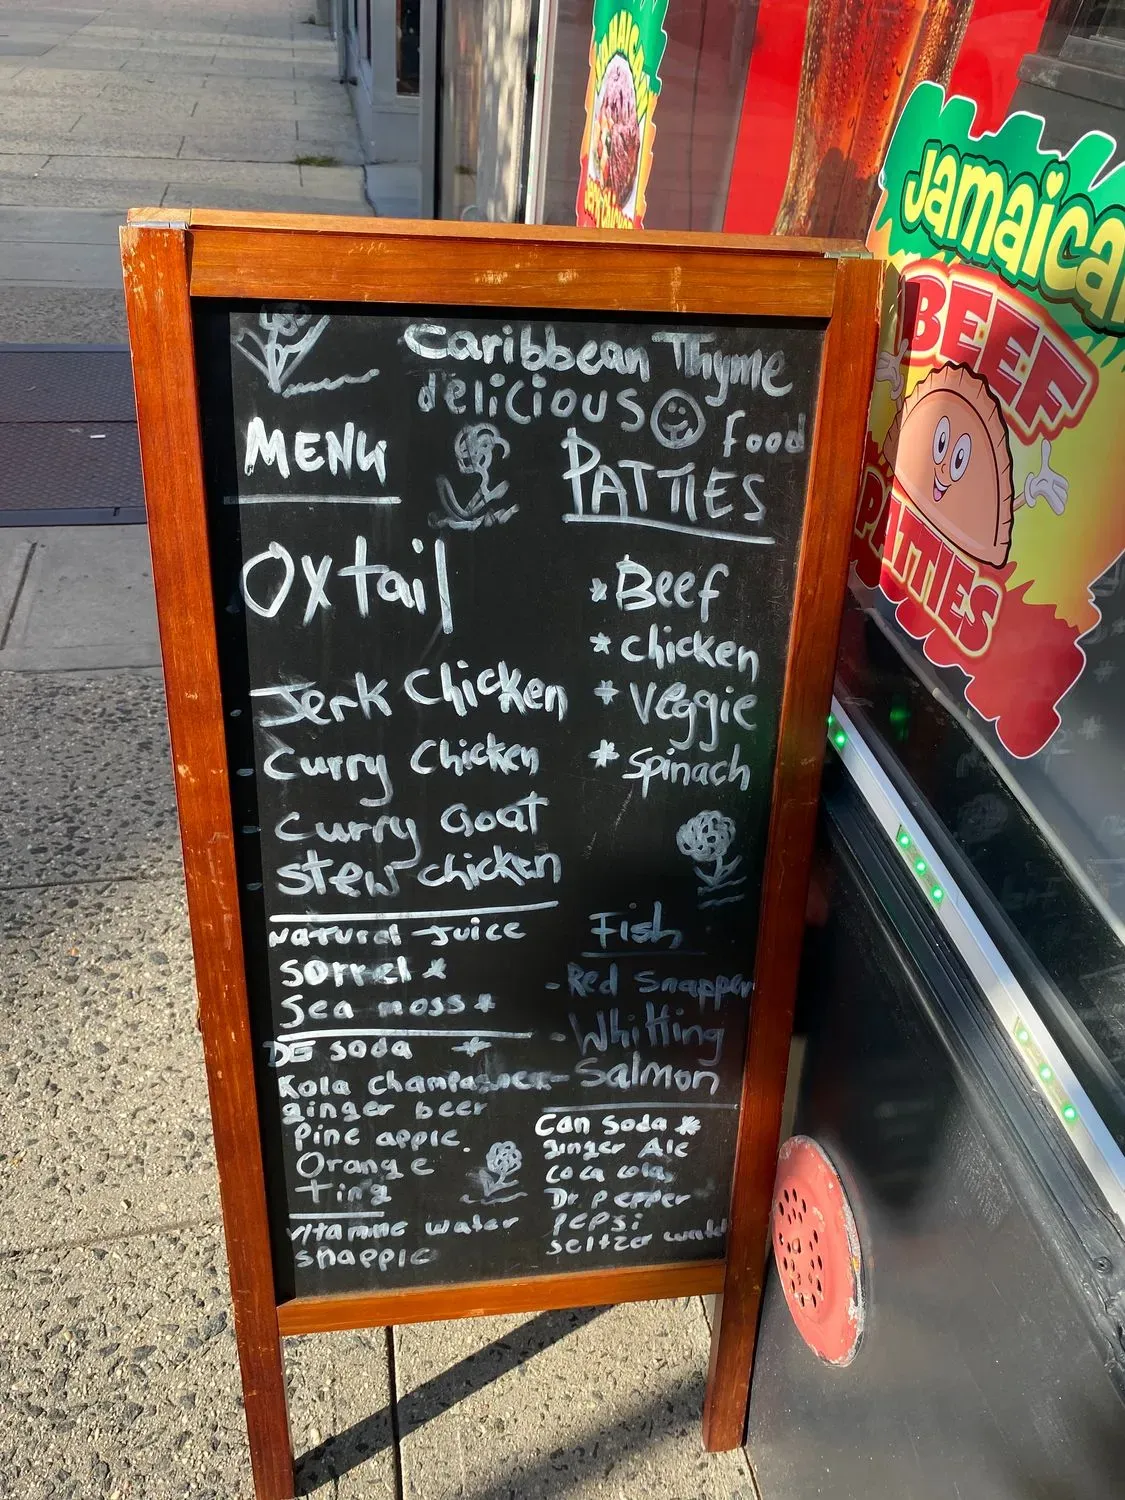 Caribbean Thyme
delicious food
MENU
Oxtail
Jerk Chicken
Curry Chicken
Curry Goat
Stew Chicken
Natural Juice
Sorrel *
Sea moss *
DG soda *
Kola champagner
ginger beer
Pine apple.
Orange
Ting
vitamine water
snapple
PATTIES
* Beef
* chicken
* Veggie
* Spinach
Fish
- Red Snapper
- Whitting
- Salmon
Can Soda *
ginger Ale
coca cola
Dr. Pepper
Pepsi
seltzer
JAMAICAN
Jamaican
BEEF
PATTIES